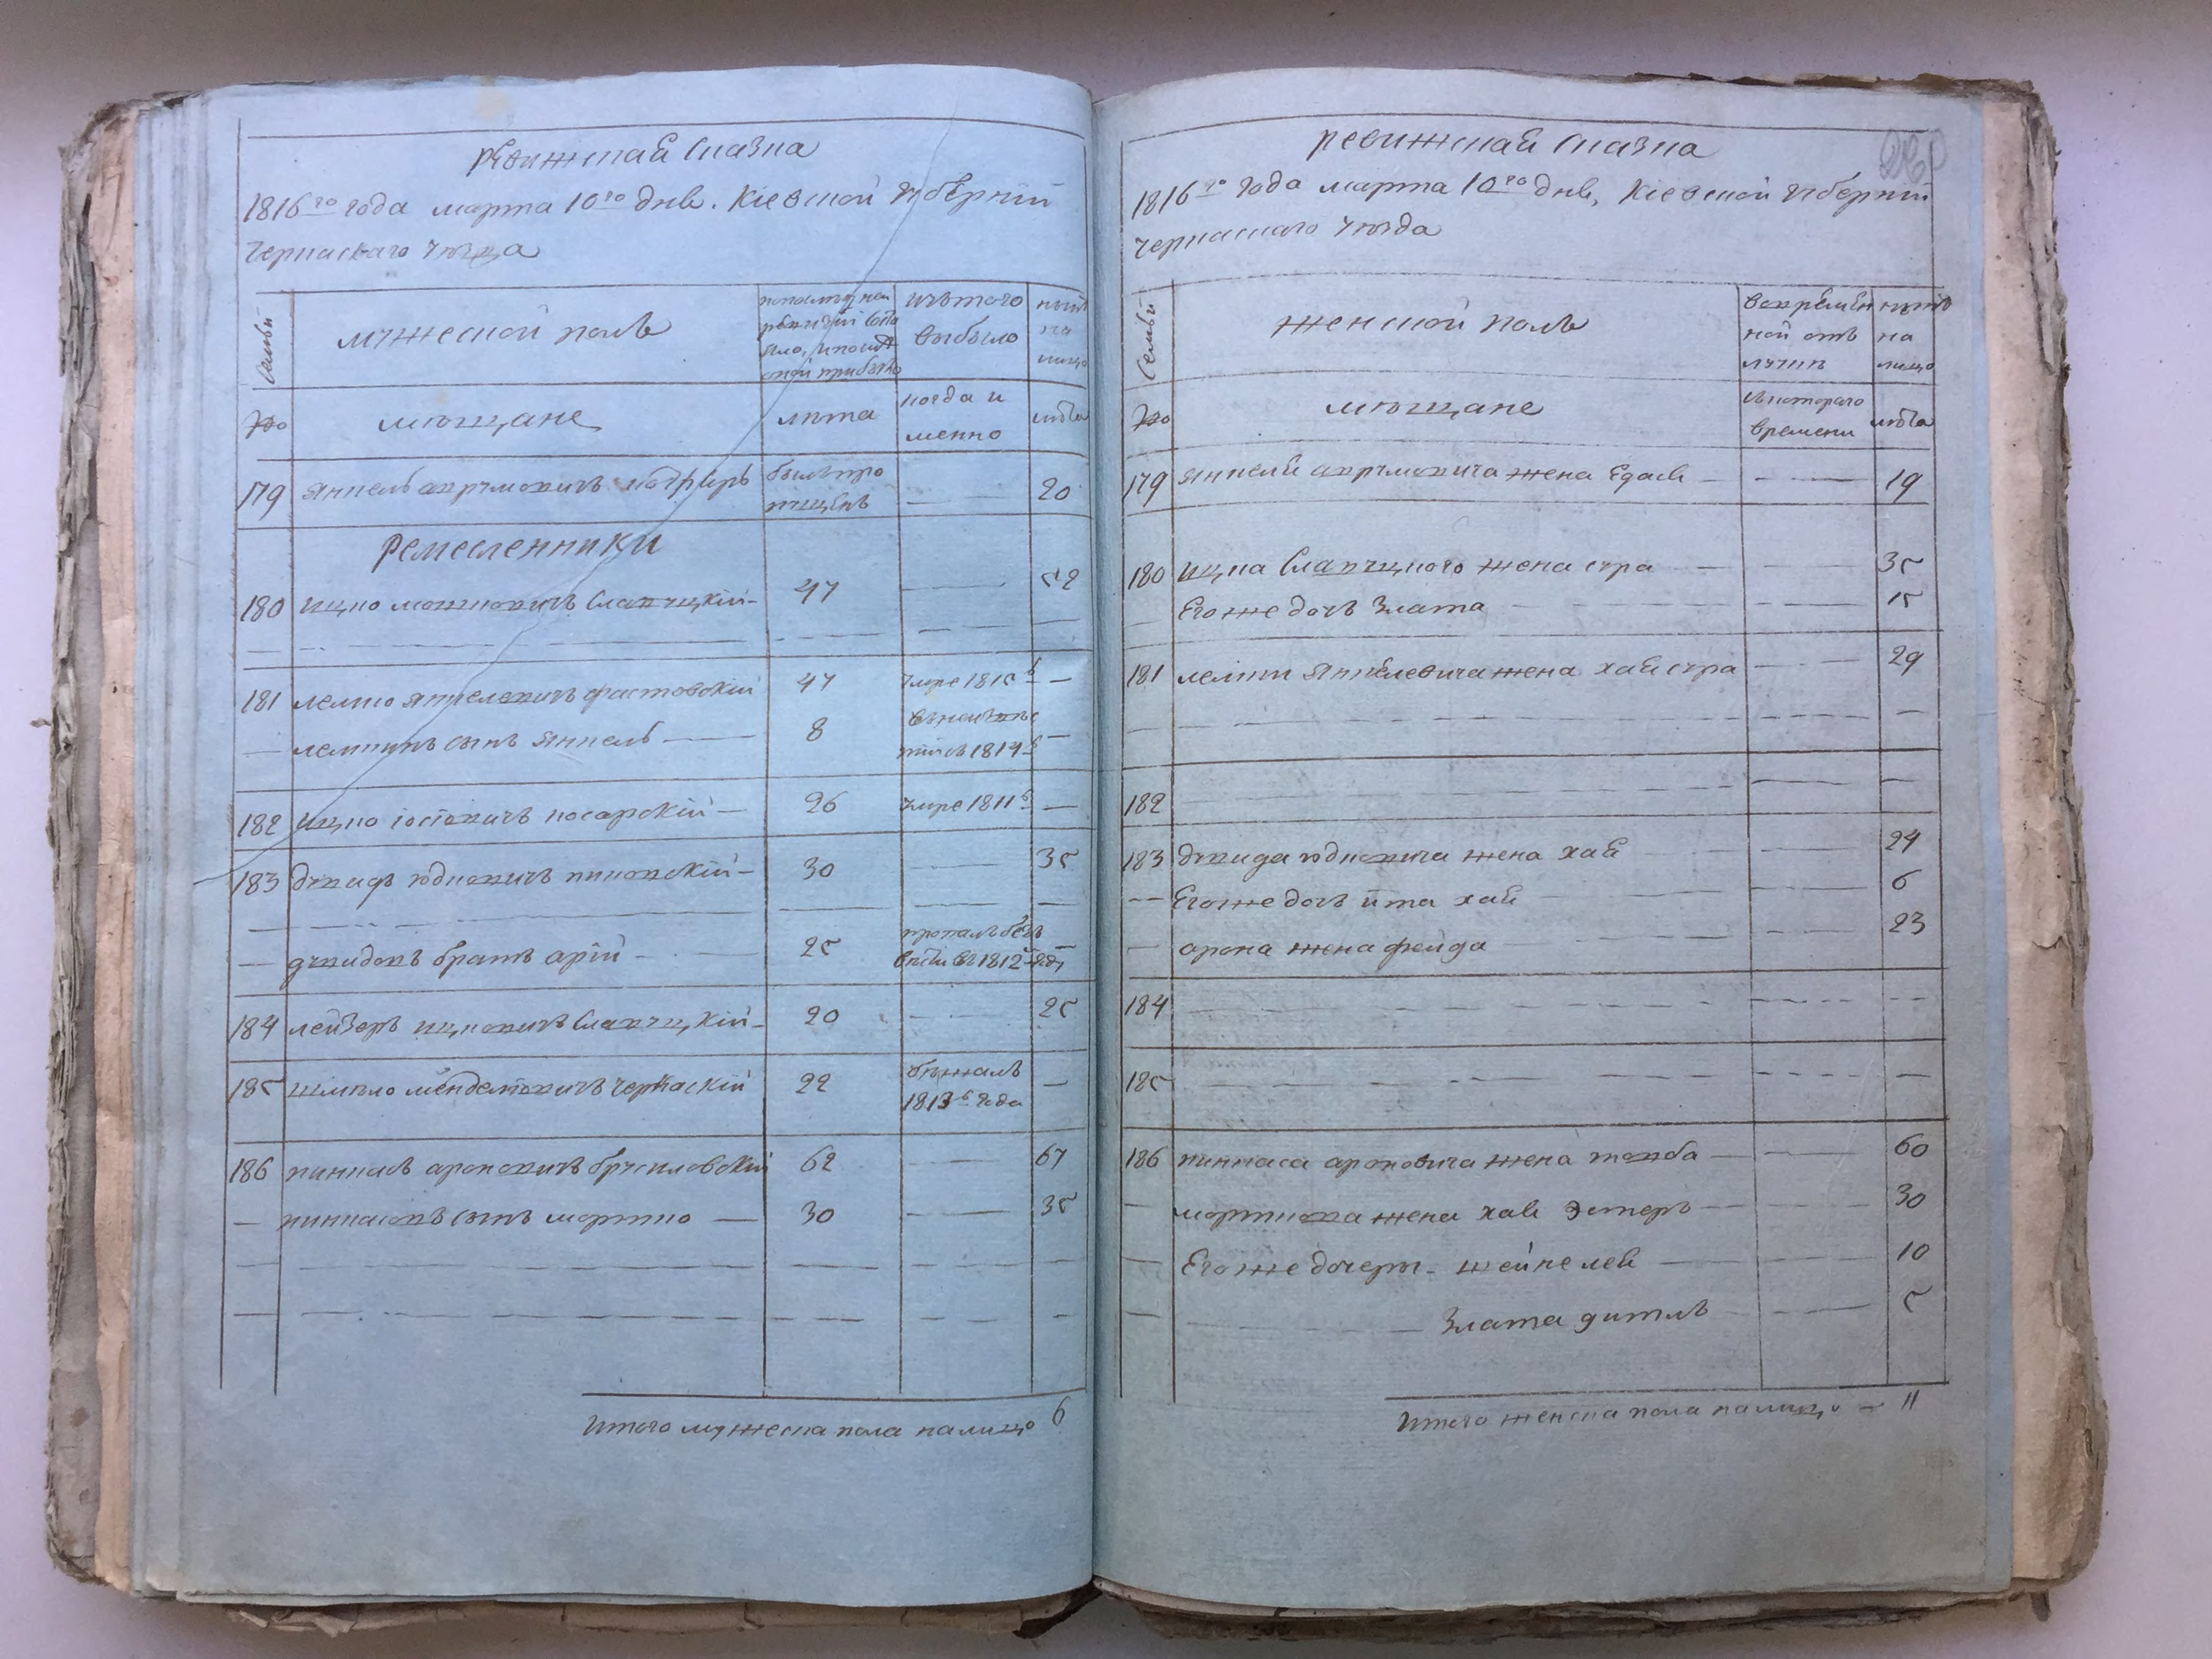 ревижская сказка
1816го года марта 10го дня. Кіевской губерніи
черкаскаго уѣзда
семьи
мужеской полъ
изъ того
выбыло
нынѣ
на
лицо
№
мѣщане
лѣта
когда и
менно
лѣта
179 Янкель Аврумовичъ былъ про
пущенъ — 20
Ремесленники
180 Ицко Мошковичъ Славуцкій — 47 — 52
181 Лемко Янкелевичъ Фастовскій 47 умре 1815 г —
— Лемкинъ сынъ Янкель — 8 1814 г —
182 Ицко Іосіовичъ Косарскій — 26 умре 1811 г —
183 Дувидъ Юдковичъ — 30 — 35
— Дувидовъ братъ Арій — 25 пропалъ безъ
вѣсти въ 1812 году
184 Лейзеръ Ицковичъ Славуцкій — 20 — 25
185 Шмуло Менделіовичъ Черкаскій 22 бѣжалъ
1813 г года —
186 Пинкасъ Ароновичъ Брусиловскій 62 — 67
— Пинкасовъ сынъ Мортко — 30 — 35
Итого мужеска пола налицо 6
ревижская сказка
1816го года марта 10го дня, Кіевской губерніи
черкаскаго уѣзда
семьи
женской полъ
во времен
ной отъ
лучкѣ
нынѣ
на
лицо
№
мѣщане
съ котораго
времени
лѣта
179 Янкеля Аврумовича жена Едася — — 19
180 Ицка Славуцкого жена Сура — — 35
Его же дочь Злата — — 15
181 Лемки Янкелевича жена Хая Сура — — 29
182
183 Дувида Юдковича жена Хая — 24
— Его же дочь Ита Хая — 6
— Арона жена Фейга — 23
184
185
186 Пинкаса Ароновича жена Товба — — 60
— Морткова жена Хая Эстеръ — — 30
— Его же дочери — Шейне Лея — — 10
— Злата Гитль — — 5
Итого женска пола налицо — 11